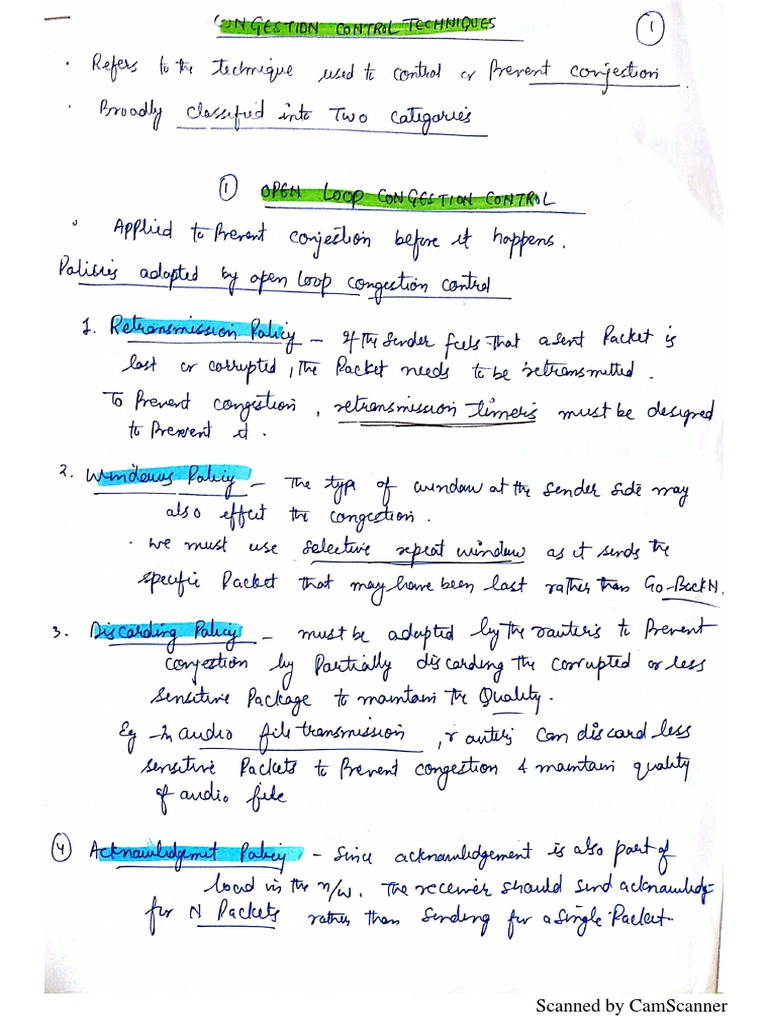 CONGESTION CONTROL TECHNIQUES
1
· Refers to the technique used to control or Prevent conjestion.
· Broadly classified into Two categories
1 OPEN LOOP CONGESTION CONTROL
· Applied to Prevent conjestion before it happens.
Policies adopted by open loop congestion control
1. Retransmission Policy - If the Sender feels that a sent Packet is
lost or corrupted, the Packet needs to be retransmitted.
To Prevent congestion, retransmission timers must be designed
to Prevent it.
2. Windows Policy - The type of window at the sender side may
also effect the congestion.
· we must use selective repeat window as it sends the
specific Packet that may have been lost rather than Go-Back N.
3. Discarding Policy - must be adopted by the routers to Prevent
Conjestion by Partially discarding the corrupted or less
Sensitive Package to maintain the Quality.
Eg - In audio file transmission, routers can discard less
sensitive Packets to Prevent congestion & maintain quality
of audio file
4 Acknowledgment Policy - Since acknowledgement is also part of
load in the n/w. The receiver should send acknowledg
for N Packets rather than Sending for a single Packet
Scanned by CamScanner